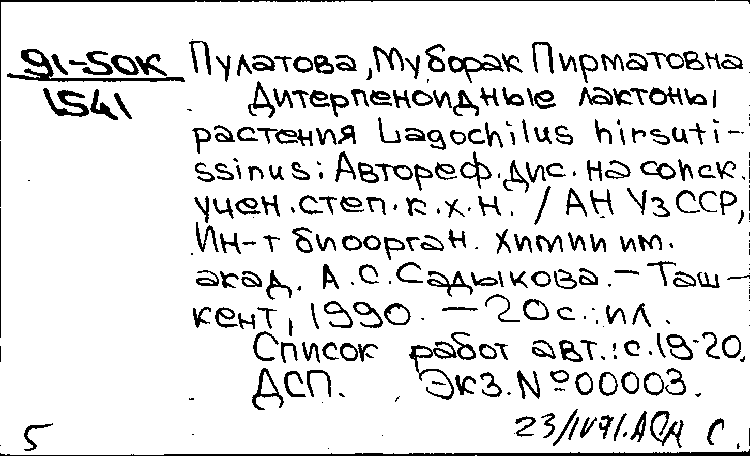 91-50К Пулатова, Муборак Пирматовна
1541 Дитерпеноидные лактоны
растения Lagochilus hirsuti-
ssinus: Автореф. дис. на соиск.
учен. степ. к. х. н. / АН УзССР,
Ин-т биоорган. химии им.
акад. А. С. Садыкова. — Таш-
кент, 1990. — 20 с.: ил.
Список работ авт.: с. 18-20.
ДСП. Экз. № 00003.
5 23/IV91. С.